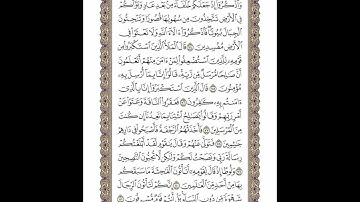 وَاذْكُرُوا إِذْ جَعَلَكُمْ خُلَفَاءَ مِنْ بَعْدِ عَادٍ وَبَوَّأَكُمْ
فِي الْأَرْضِ تَتَّخِذُونَ مِنْ سُهُولِهَا قُصُورًا وَتَنْحِتُونَ
الْجِبَالَ بُيُوتًا فَاذْكُرُوا آلَاءَ اللَّهِ وَلَا تَعْثَوْا فِي
الْأَرْضِ مُفْسِدِينَ ٧٤ قَالَ الْمَلَأُ الَّذِينَ اسْتَكْبَرُوا مِنْ
قَوْمِهِ لِلَّذِينَ اسْتُضْعِفُوا لِمَنْ آمَنَ مِنْهُمْ أَتَعْلَمُونَ
أَنَّ صَالِحًا مُرْسَلٌ مِنْ رَبِّهِ قَالُوا إِنَّا بِمَا أُرْسِلَ بِهِ
مُؤْمِنُونَ ٧٥ قَالَ الَّذِينَ اسْتَكْبَرُوا إِنَّا بِالَّذِي
آمَنْتُمْ بِهِ كَافِرُونَ ٧٦ فَعَقَرُوا النَّاقَةَ وَعَتَوْا عَنْ
أَمْرِ رَبِّهِمْ وَقَالُوا يَا صَالِحُ ائْتِنَا بِمَا تَعِدُنَا إِنْ كُنْتَ
مِنَ الْمُرْسَلِينَ ٧٧ فَأَخَذَتْهُمُ الرَّجْفَةُ فَأَصْبَحُوا فِي دَارِهِمْ
جَاثِمِينَ ٧٨ فَتَوَلَّى عَنْهُمْ وَقَالَ يَا قَوْمِ لَقَدْ أَبْلَغْتُكُمْ
رِسَالَةَ رَبِّي وَنَصَحْتُ لَكُمْ وَلَكِنْ لَا تُحِبُّونَ النَّاصِحِينَ
٧٩ وَلُوطًا إِذْ قَالَ لِقَوْمِهِ أَتَأْتُونَ الْفَاحِشَةَ مَا سَبَقَكُمْ
بِهَا مِنْ أَحَدٍ مِنَ الْعَالَمِينَ ٨٠ إِنَّكُمْ لَتَأْتُونَ الرِّجَالَ
شَهْوَةً مِنْ دُونِ النِّسَاءِ بَلْ أَنْتُمْ قَوْمٌ مُسْرِفُونَ ٨١